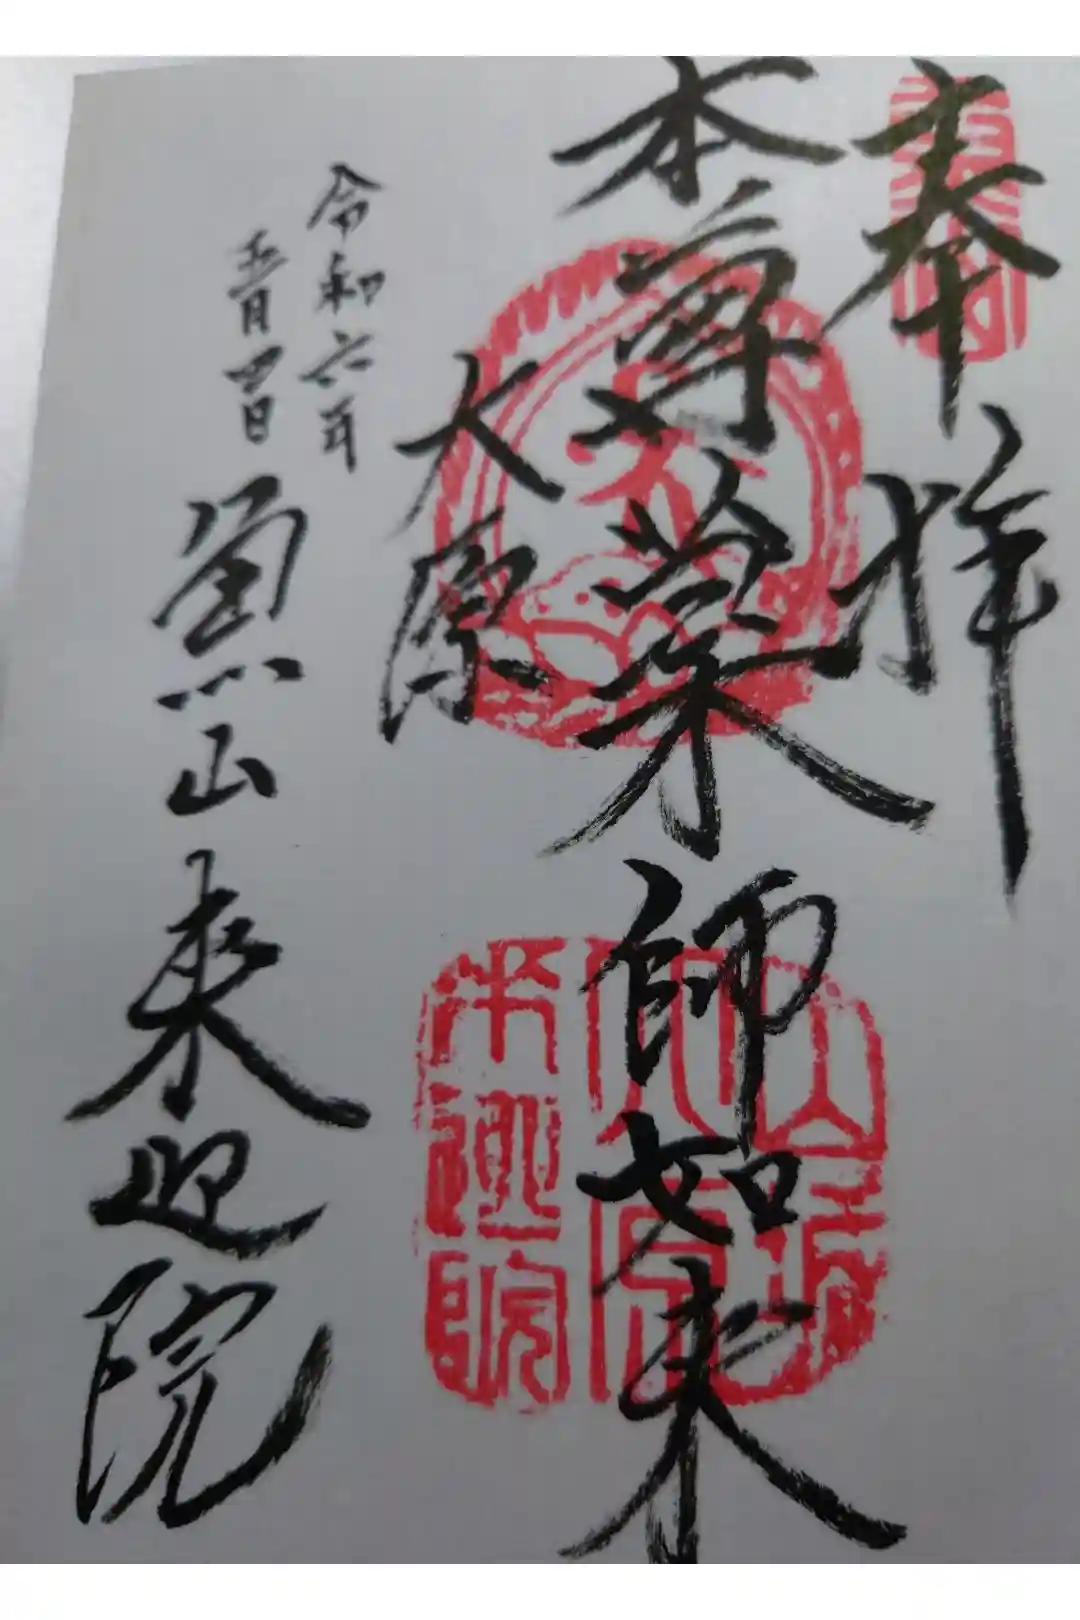 奉拝
本尊薬師如来
大原
令和六年
五月四日
魚山来迎院
来迎院